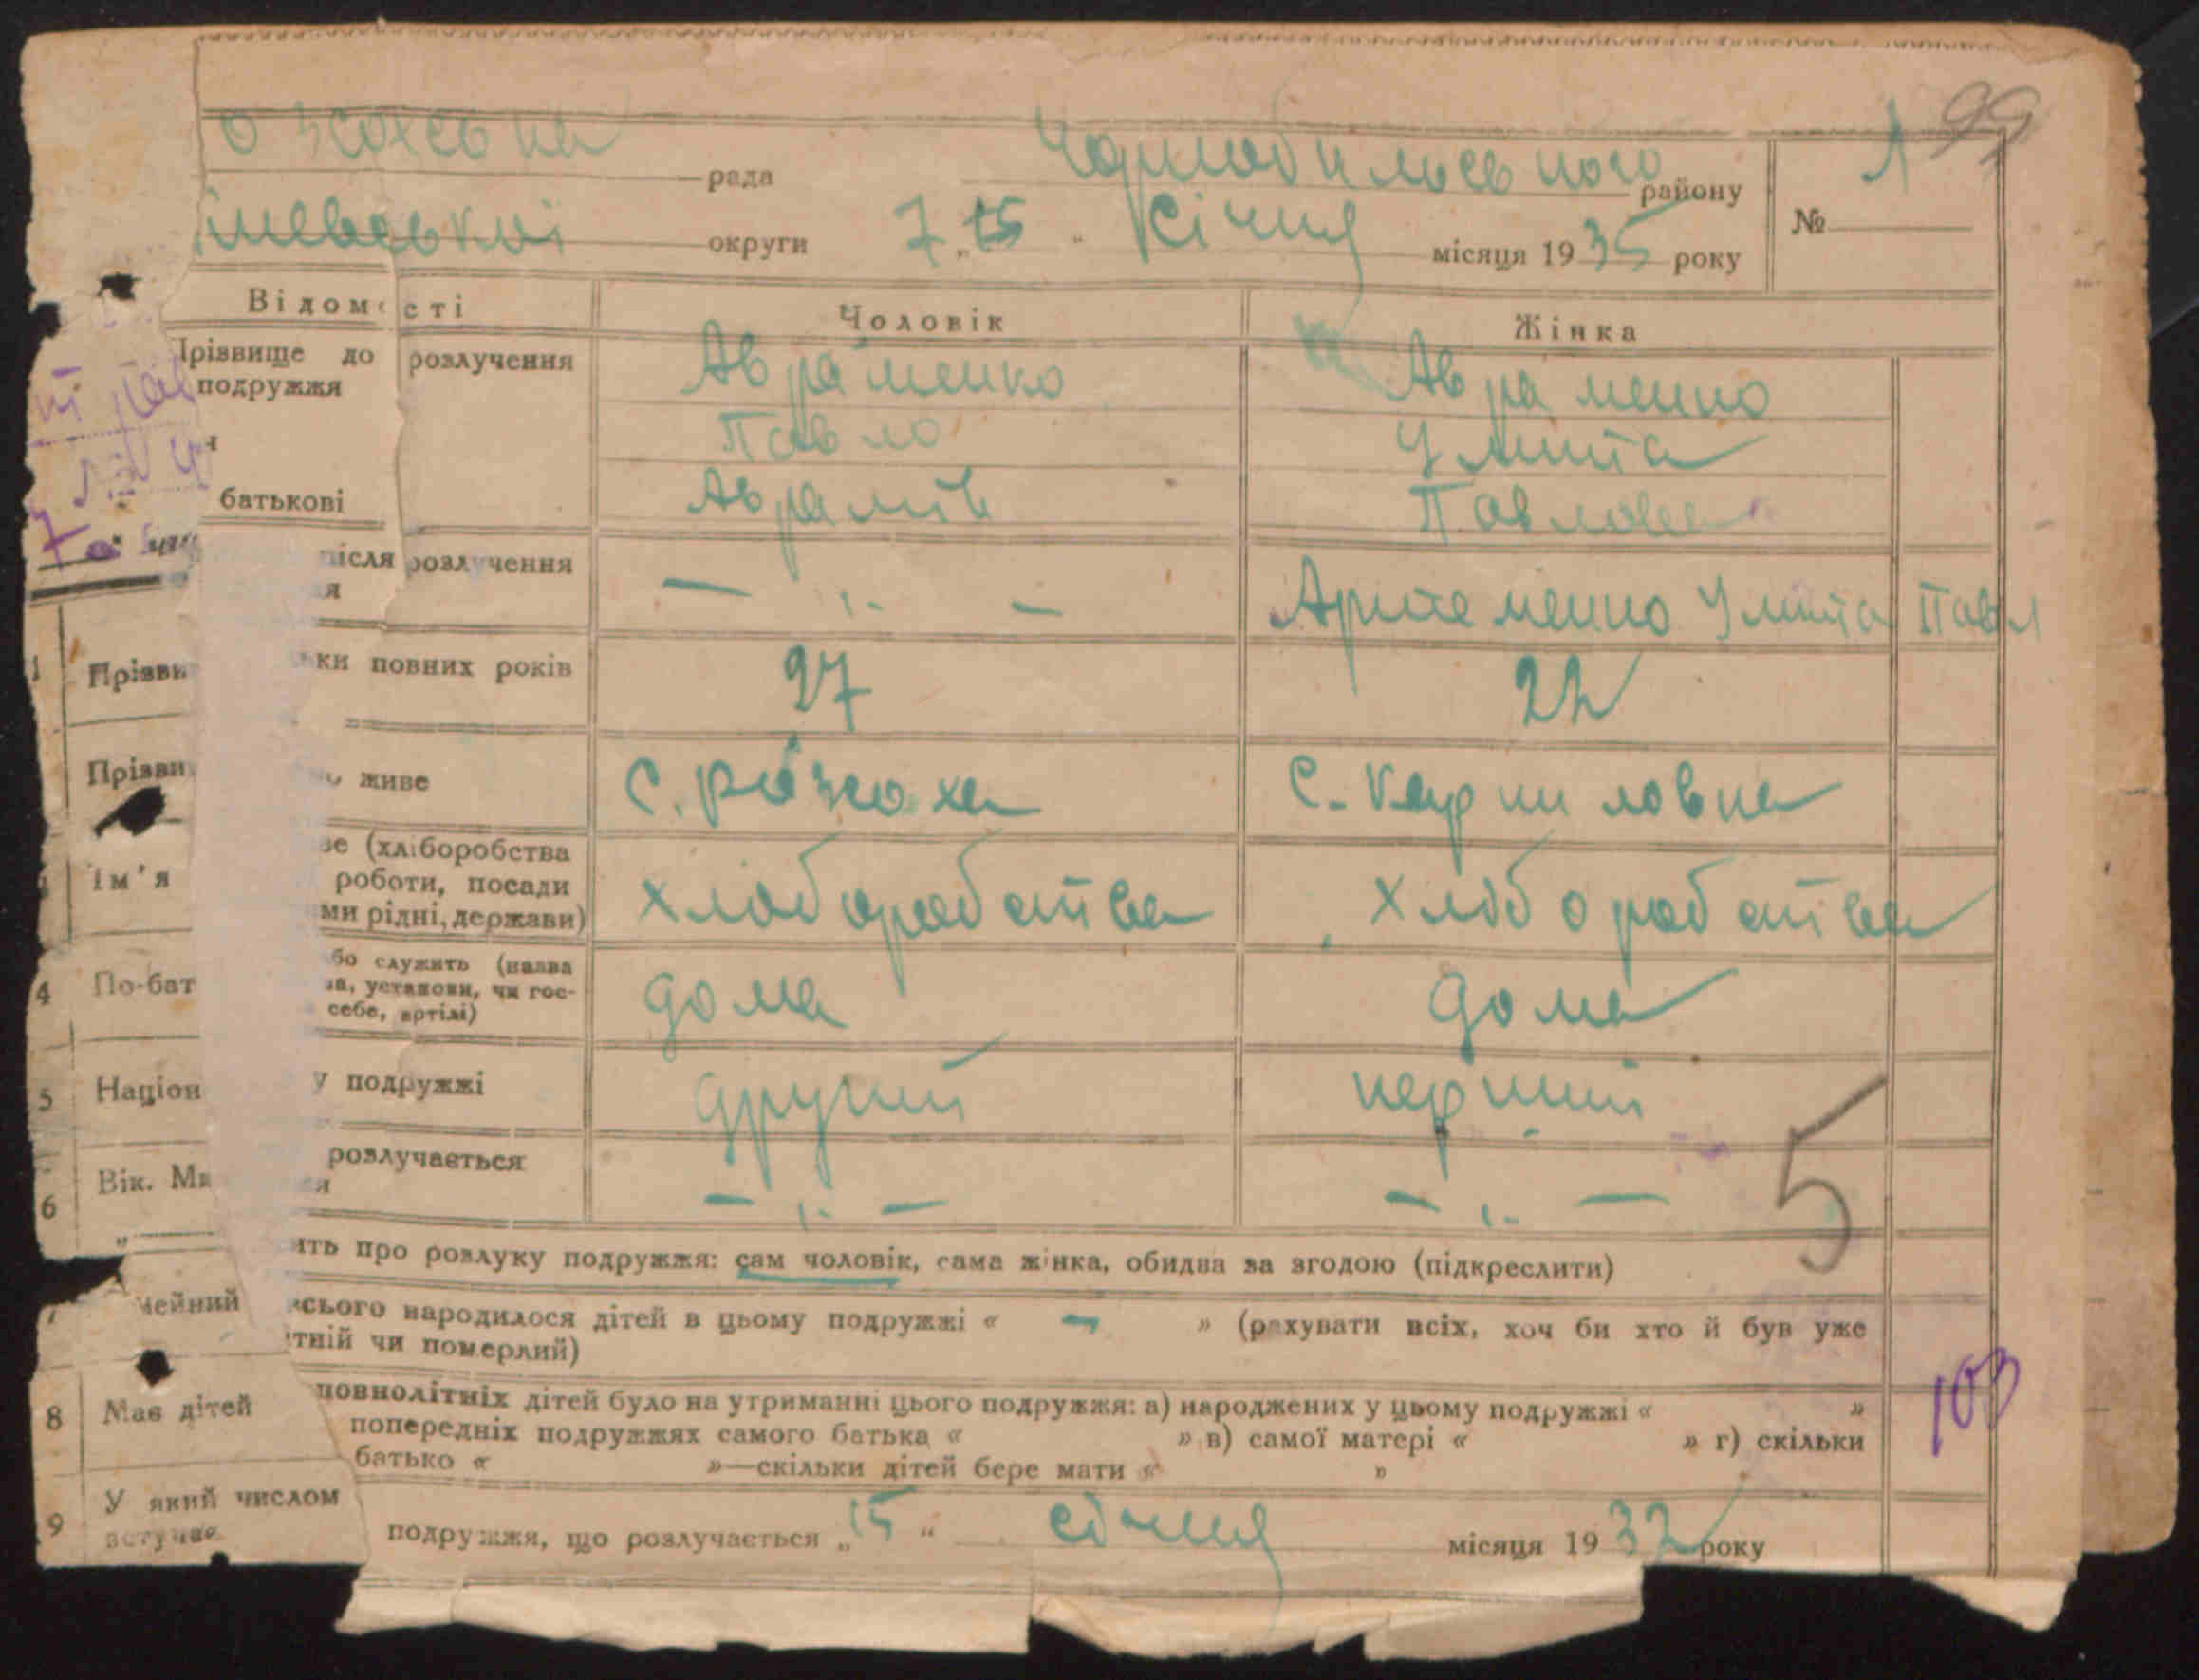 99
озсохська рада Чорнобильського району № 1
иївської округи 7 „15" Січня місяця 1935 року
Відомості Чоловік Жінка
Прізвище до розлучення подружжя Авраменко Авраменко
Павло Улита
батькові Аврамів Павловна
після розлучення — „ — Артеменко Улита Павл
1 Прізви ьки повних років 27 22
Прізви живе с. Розсоха с. Карпиловка
ве (хліборобства
Ім'я роботи, посади хлоборобства хлоборобства
ми рідні, держави)
бо служить (назва
4 По-бат ва, установи, чи гос- дома дома
себе, артілі)
5 Націон у подружжі другий перший
6 Вік. розлучається — „ — — „ —
5
ить про розлуку подружжя: сам чоловік, сама жінка, обидва за згодою (підкреслити)
мейний всього народилося дітей в цьому подружжі « — » (рахувати всіх, хоч би хто й був уже
тній чи померлий)
8 Має дітей повнолітніх дітей було на утриманні цього подружжя: а) народжених у цьому подружжі « »
попередніх подружжях самого батька « » в) самої матері « » г) скільки
батько « »—скільки дітей бере мати « »
103
9 У який числом
вступає подружжя, що розлучається „15" січня місяця 1932 року